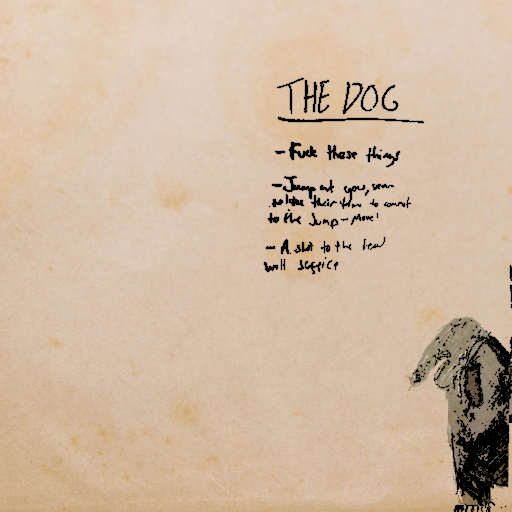 THE DOG
- Fuck these things
- Jump at you, seem
to take their time to commit
to the Jump - Move!
- A shot to the head
will suffice